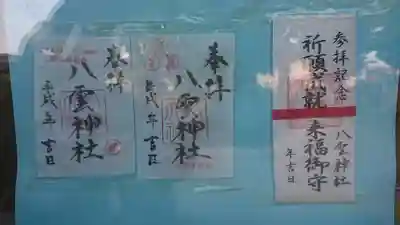 参拝記念
祈願成就来福御守
八雲神社
年吉日
奉拝
八雲神社
平成 年 吉日
奉拝
八雲神社
平成 年 吉日